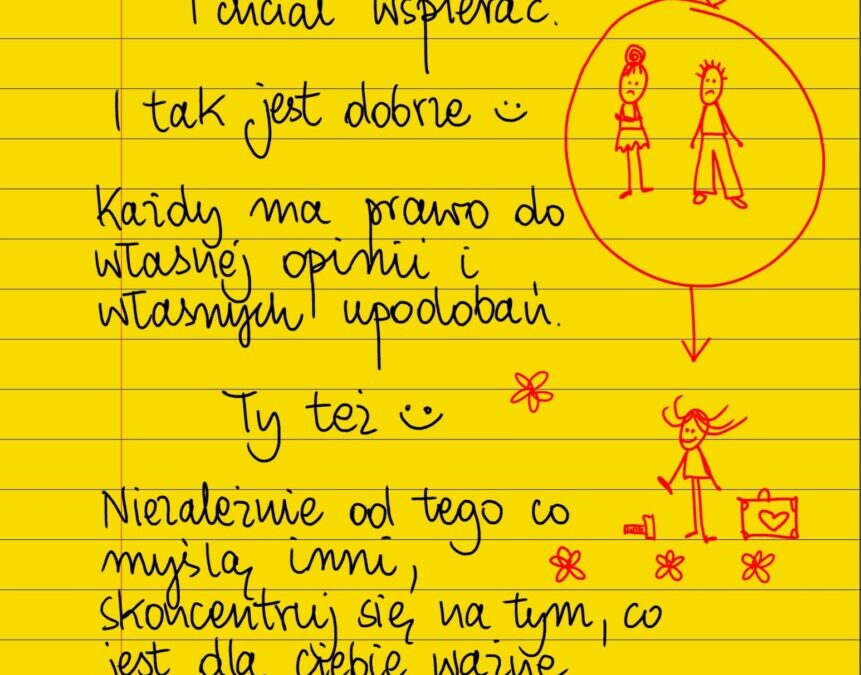 i chciał wspierać.
I tak jest dobrze :)
Każdy ma prawo do
własnej opinii i
własnych upodobań.
Ty też :)
Niezależnie od tego co
myślą inni,
skoncentruj się na tym, co
jest dla ciebie ważne